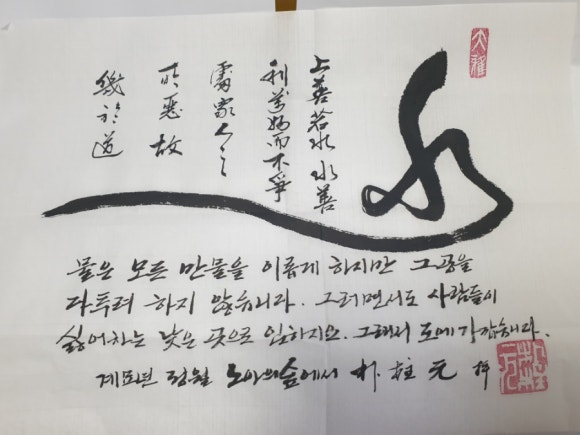 大雅
水
上善若水 水善
利萬物而不爭
處衆人之
所惡 故
幾於道
물은 모든 만물을 이롭게 하지만 그 공을
다투려 하지 않습니다. 그러면서도 사람들이
싫어하는 낮은 곳으로 임하지요. 그래서 도에 가깝습니다.
계묘년 정월 노아의숲에서 朴柱元 拜